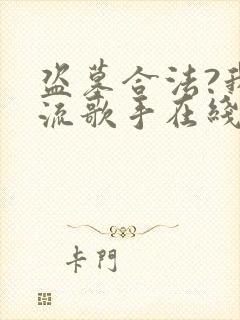 盗墓合法?我
流歌手在綫
卡門